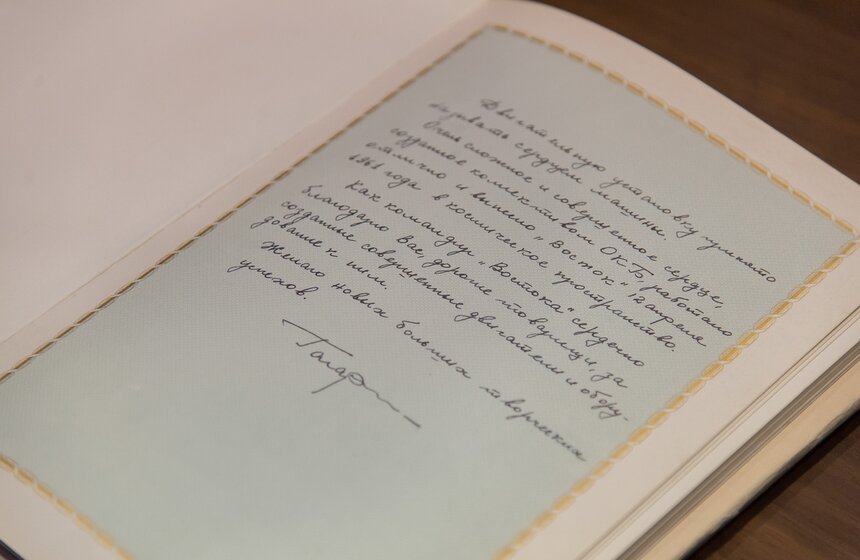 Двигательную установку принято
называть сердцем машины.
Очень сложное и совершенное сердце,
созданное коллективом ОКБ, работало
отлично и вынесло "Восток" 12 апреля
1961 года в космическое пространство.
Как командир "Востока" сердечно
благодарю Вас, дорогие товарищи, за
созданные совершенные двигатели и обору-
дование к ним.
Желаю новых больших творческих
успехов.
Гагарин